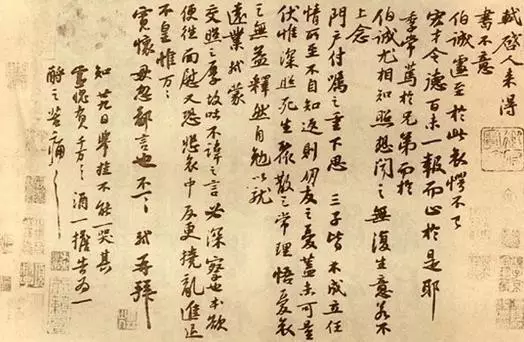 軾啓人来得
書不意
伯誠遽至於此哀愕不已
宏才令德百未一報而止於是耶
季常篤於兄弟而於
伯誠尤相知照想聞之無復生意若不
上念
門戶付囑之重下思三子皆不成立任
情所至不自知返則朋友之憂蓋未可量
伏惟深照死生聚散之常理悟憂哀
之無益釋然自勉以就
遠業軾蒙
交照之厚故吐不諱之言必深察也本欲
便往面慰又恐悲哀中反更撓亂進退
不皇惟万万
寬懷毋忽鄙言也不一一軾再拜
知廿九日舉挂不能一哭其
靈愧負千万千万酒一擔告為一
酹之苦痛苦痛